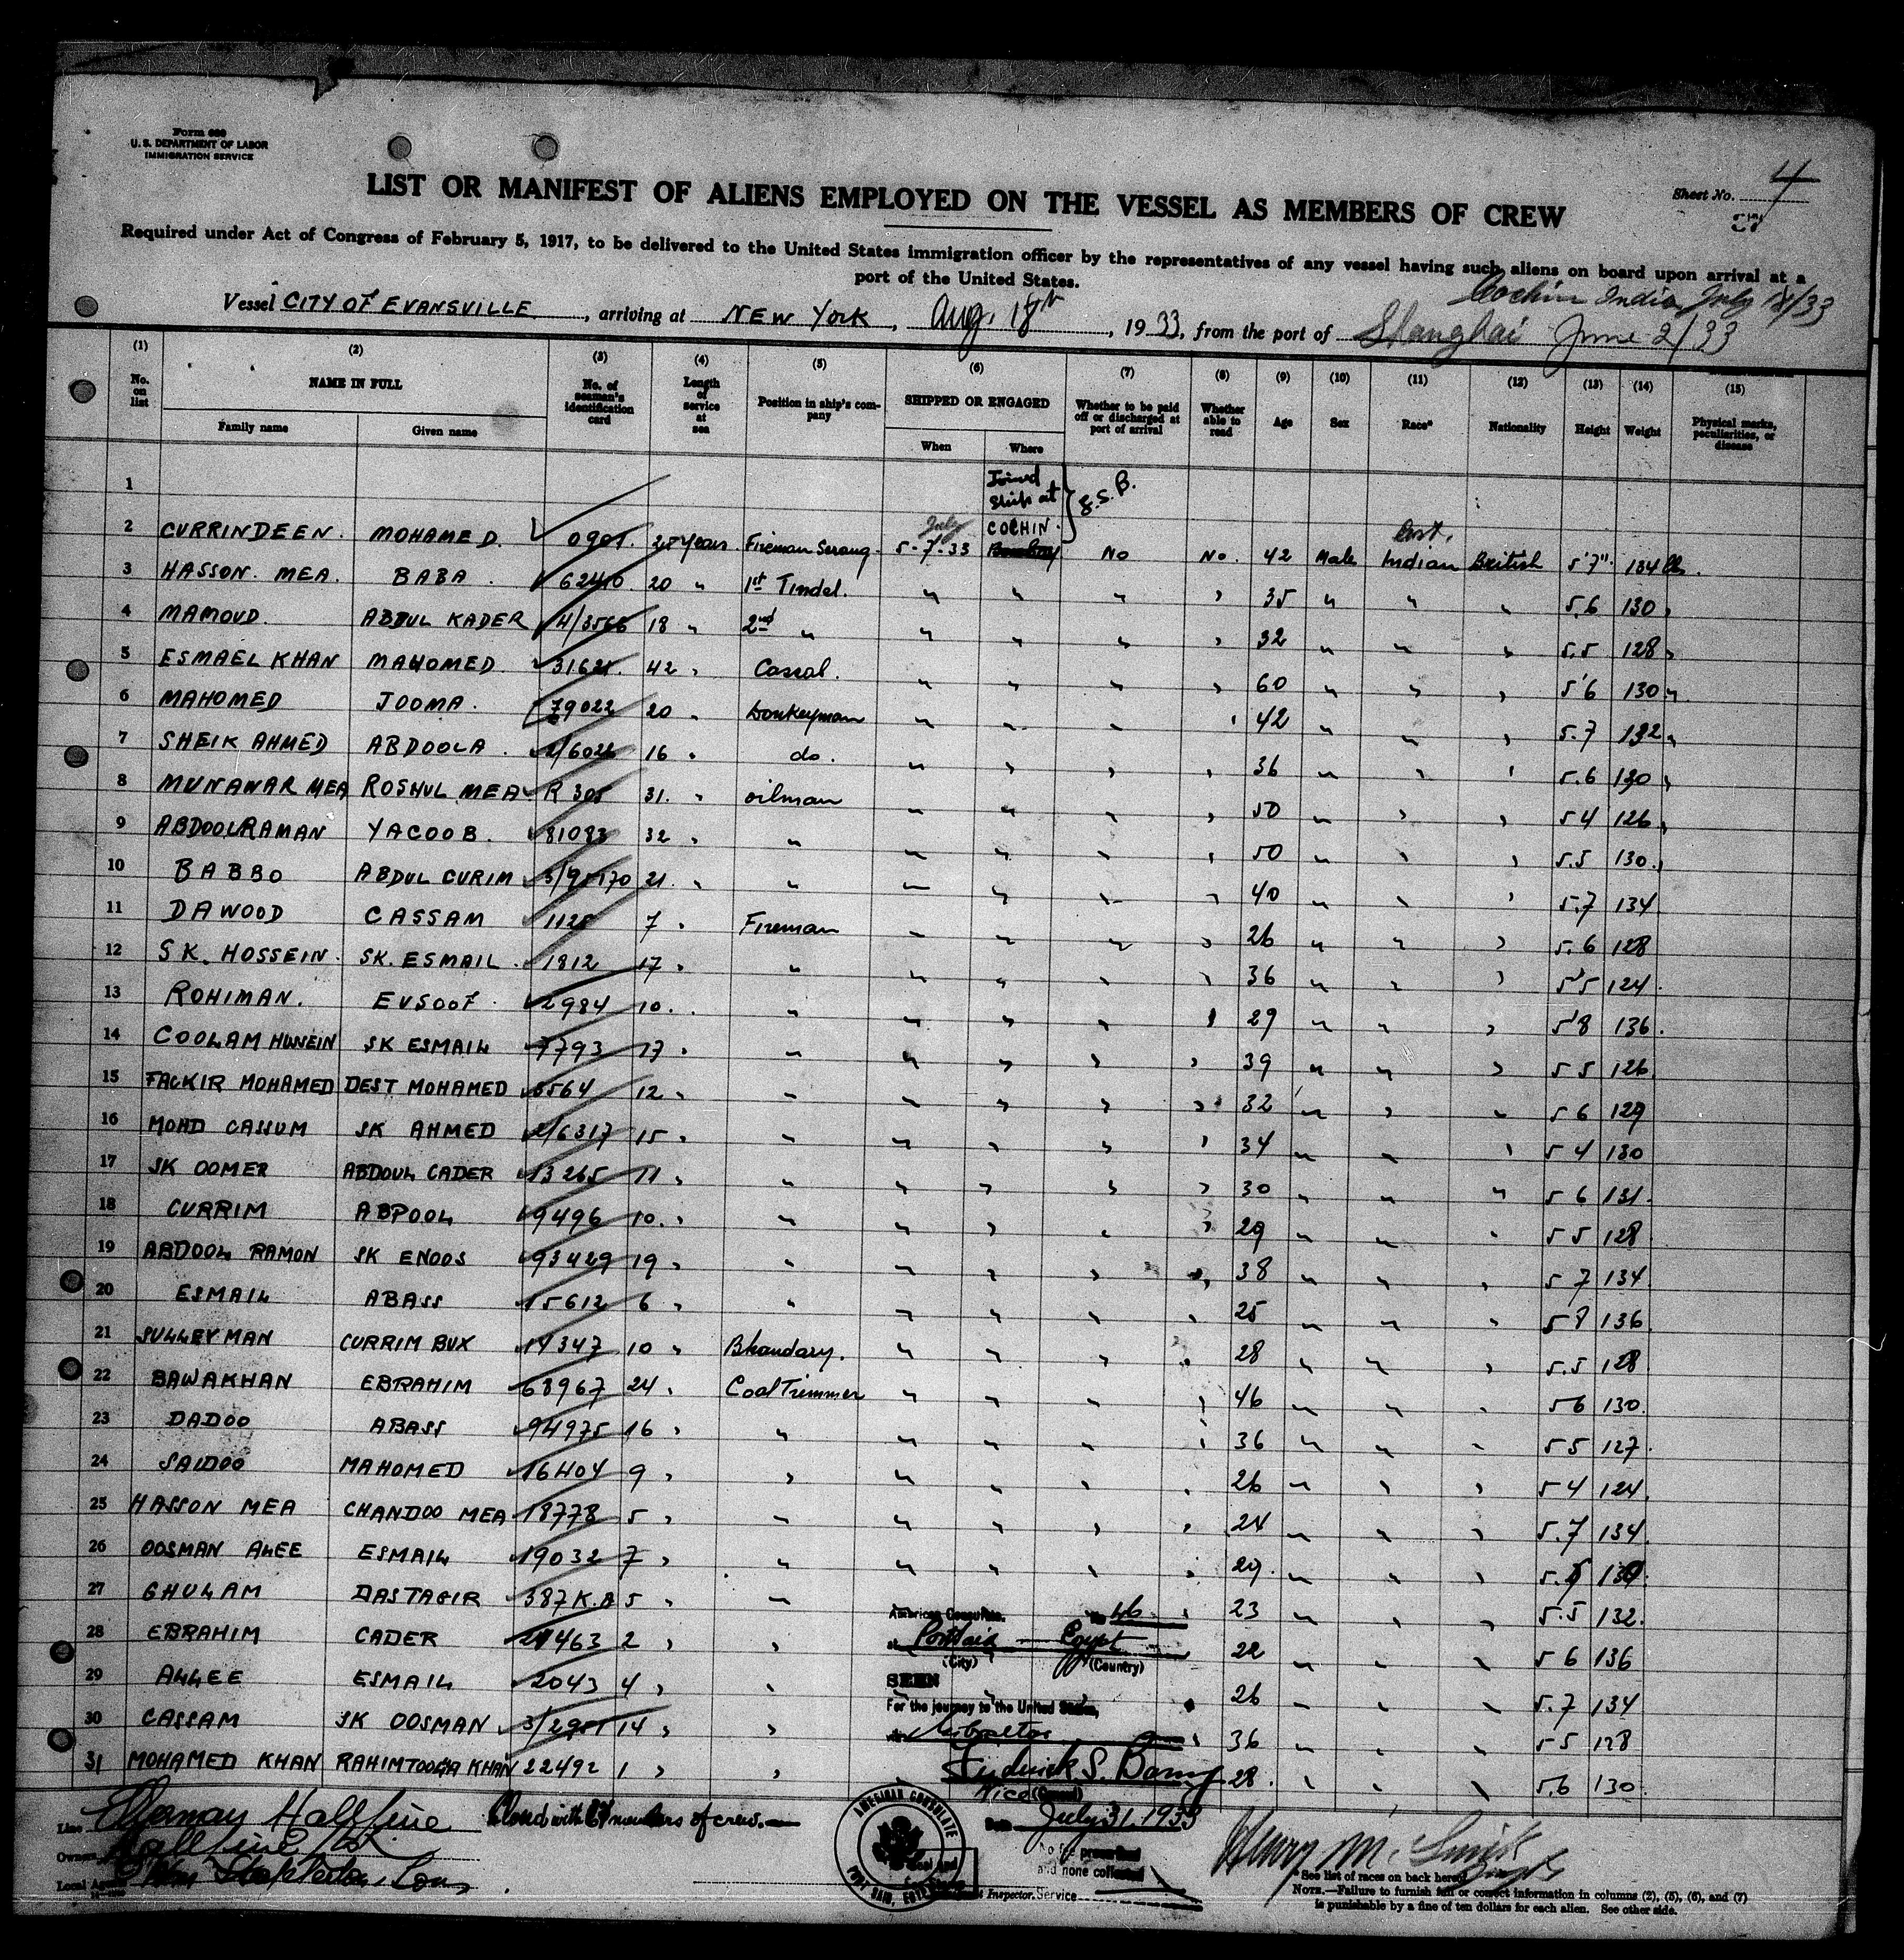 Form 680
U. S. DEPARTMENT OF LABOR
IMMIGRATION SERVICE
Sheet No. 4
LIST OR MANIFEST OF ALIENS EMPLOYED ON THE VESSEL AS MEMBERS OF CREW
Required under Act of Congress of February 5, 1917, to be delivered to the United States immigration officer by the representatives of any vessel having such aliens on board upon arrival at a
port of the United States.
Cochin India July 18/33
Vessel CITY OF EVANSVILLE, arriving at NEW YORK, Aug. 18th, 1933, from the port of Shanghai June 2/33
(1) (2) (3) (4) (5) (6) (7) (8) (9) (10) (11) (12) (13) (14) (15)
No. on list NAME IN FULL No. of seaman's identification card Length of service at sea Position in ship's company SHIPPED OR ENGAGED Whether to be paid off or discharged at port of arrival Whether able to read Age Sex Race* Nationality Height Weight Physical marks, peculiarities, or disease
Family name Given name When Where
1 Joined Ship at G.S.B.
2 CURRINDEEN MOHAMED. 25 Years. Fireman Serang. July 5-7-33 COCHIN. Bombay No No. 42 Male East. Indian British 5'7" 134 lbs.
3 HASSON. MEA. BABA. 62410 20 " 1st Tindel. " " " " 35 " " " 5.6 130 "
4 MAMOUD. ABDUL KADER 4/3566 18 " 2nd " " " " " 32 " " " 5.5 128 "
5 ESMAEL KHAN MAHOMED 31621. 42 " Cassal. " " " " 60 " " " 5'6 130 "
6 MAHOMED JOOMA. 79022 20 " Donkeyman " " " " 42 " " " 5.7 132 "
7 SHEIK AHMED ABDOOLA. 2/6026 16 " do. " " " " 36 " " " 5.6 130 "
8 MUNAWAR MEA ROSHUL MEA R 305 31. " oilman " " " " 50 " " " 5 4 126 "
9 ABDOOLRAMAN YACOOB. 81083 32 " " " " " " 50 " " " 5.5 130 "
10 BABBO ABDUL CURIM 21. " " " " " " 40 " " " 5.7 134
11 DAWOOD CASSAM 1125 7 " Fireman " " " " 26 " " " 5.6 128
12 SK. HOSSEIN. SK. ESMAIL. 1812 17 " " " " " " 36 " " " 5'5 124.
13 ROHIMAN. EUSOOF. 2984 10. " " " " " " 29 " " " 5'8 136.
14 COOLAM HUSSEIN SK ESMAIL 7793 17 " " " " " " 39 " " " 5 5 126.
15 FACKIR MOHAMED DEST MOHAMED 5564 12 " " " " " " 32 " " " 5 6 129
16 MOHD CASSUM SK AHMED 2/6317 15 " " " " " " 34 " " " 5 4 130
17 SK OOMER ABDOUL CADER 13265 11 " " " " " " 30 " " " 5 6 131.
18 CURRIM ABDOOL 9496 10. " " " " " " 29 " " " 5 5 128.
19 ABDOOL RAMON SK ENOOS 93429 19 " " " " " " 38 " " " 5 7 134.
20 ESMAIL ABASS 15612 6 " " " " " " 25 " " " 5 8 136.
21 SULLEYMAN CURRIM BUX 14347 10 " Bhandary. " " " " 28 " " " 5.5 128
22 BAWAKHAN EBRAHIM 68967 24 " Coal Trimmer " " " " 46 " " " 5 6 130.
23 DADOO ABASS 94975 16 " " " " " " 36 " " " 5 5 127.
24 SAIDOO MAHOMED 16404 9 " " " " " " 26 " " " 5 4 124.
25 HASSON MEA CHANDOO MEA 18778 5 " " " " " " 24 " " " 5.7 134.
26 OOSMAN ALEE ESMAIL 19032 7 " " " " " " 29. " " "
27 GHULAM DASTAGIR 387 K.B 5 " " 23 " " " 5.5 132.
28 EBRAHIM CADER 21463 2 " " 22 " " " 5 6 136
29 ALLEE ESMAIL 2043 4 " " 26 " " " 5.7 134
30 CASSAM SK OOSMAN 14 " " 36 " " " 5 5 128
31 MOHAMED KHAN RAHIMTOOLA KHAN 22492 1 " " 28. " " " 5.6 130
American Consulate. No 46
at Port Said Egypt
(City) (Country)
SEEN
For the journey to the United States,
Via Gibraltar
Frederick S. Barny
Vice (Consul)
Date July 31, 1933
No fee prescribed
and none collected
AMERICAN CONSULATE
PORT SAID, EGYPT
Line Ellerman Hall Line Closed with 67 members of crew.
Owners Hall Line Ltd.
Local Agents
Immigrant Inspector. Service
Henry M.
* See list of races on back hereof.
NOTE.—Failure to furnish full or correct information in columns (2), (5), (6), and (7)
is punishable by a fine of ten dollars for each alien. See other side.